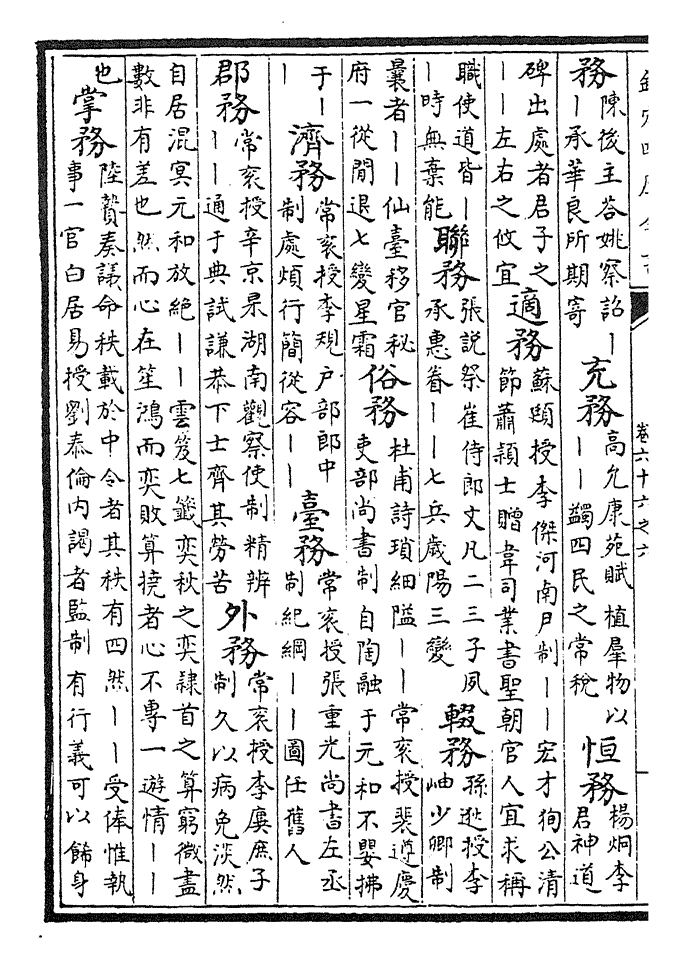 卷六十六之六
務
陳後主答姚察詔丨
丨承華良所期寄
充務
高允康苑賦植羣物以
丨丨蠲四民之常稅
恒務
楊炯李
君神道
碑出處者君子之
丨丨左右之攸宜
適務
蘇頲授李傑河南尹制丨丨宏才徇公清
節蕭穎士贈韋司業書聖朝官人宜求稱
職使道皆丨
丨時無棄能
聯務
張説祭崔侍郎文凡二三子夙
承惠眷丨丨七兵歲陽三變
輟務
孫逖授李
岫少卿制
曩者丨丨仙臺移官秘
府一從閒退七變星霜
俗務
杜甫詩瑣細隘丨丨常衮授裴遵慶
吏部尚書制自陶融于元和不嬰拂
于丨
丨
濟務
常衮授李規户部郎中
制處煩行簡從容丨丨
臺務
常衮授張重光尚書左丞
制紀綱丨丨圖任舊人
郡務
常衮授辛京杲湖南觀察使制精辨
丨丨通于典試謙恭下士齊其勞苦
外務
常衮授李廙庶子
制久以病免淡然
自居混冥元和放絶丨丨雲笈七籤奕秋之奕隷首之算窮微盡
數非有差也然而心在笙鴻而奕敗算撓者心不專一遊情丨丨
也
掌務
陸贄奏議命秩載於中令者其秩有四然丨丨受俸惟執
事一官白居易授劉泰倫内謁者監制有行義可以飾身